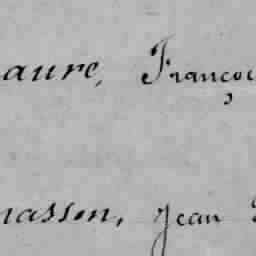 aure, Françoi
masson, Jean